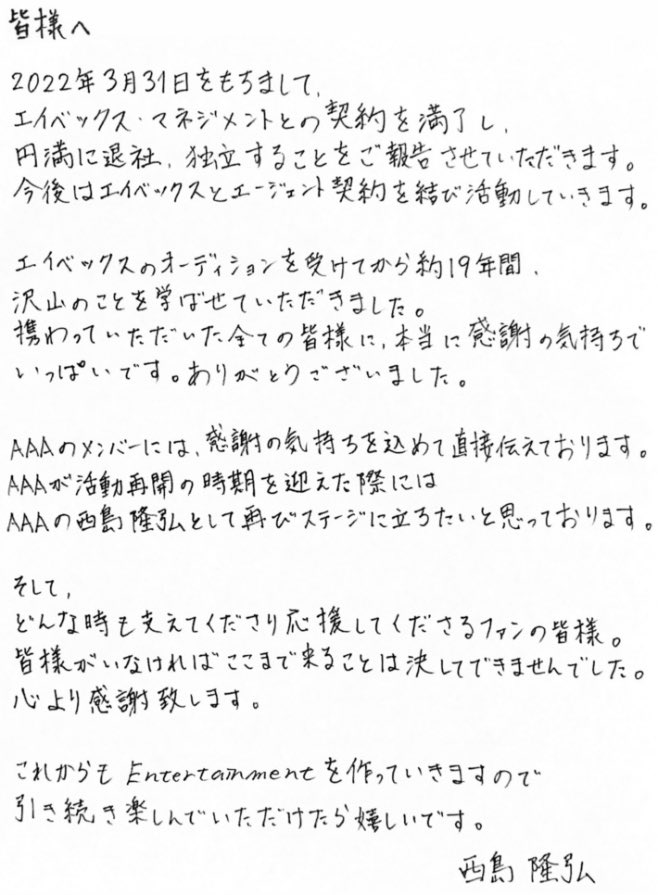 皆様へ
2022年3月31日をもちまして、
エイベックス・マネジメントとの契約を満了し、
円満に退社、独立することをご報告させていただきます。
今後はエイベックスとエージェント契約を結び活動していきます。
エイベックスのオーディションを受けてから約19年間、
沢山のことを学ばせていただきました。
携わっていただいた全ての皆様に、本当に感謝の気持ちで
いっぱいです。ありがとうございました。
AAAのメンバーには、感謝の気持ちを込めて直接伝えております。
AAAが活動再開の時期を迎えた際には
AAAの西島隆弘として再びステージに立ちたいと思っております。
そして、
どんな時も支えてくださり応援してくださるファンの皆様。
皆様がいなければここまで来ることは決してできませんでした。
心より感謝致します。
これからもEntertainmentを作っていきますので
引き続き楽しんでいただけたら嬉しいです。
西島 隆弘